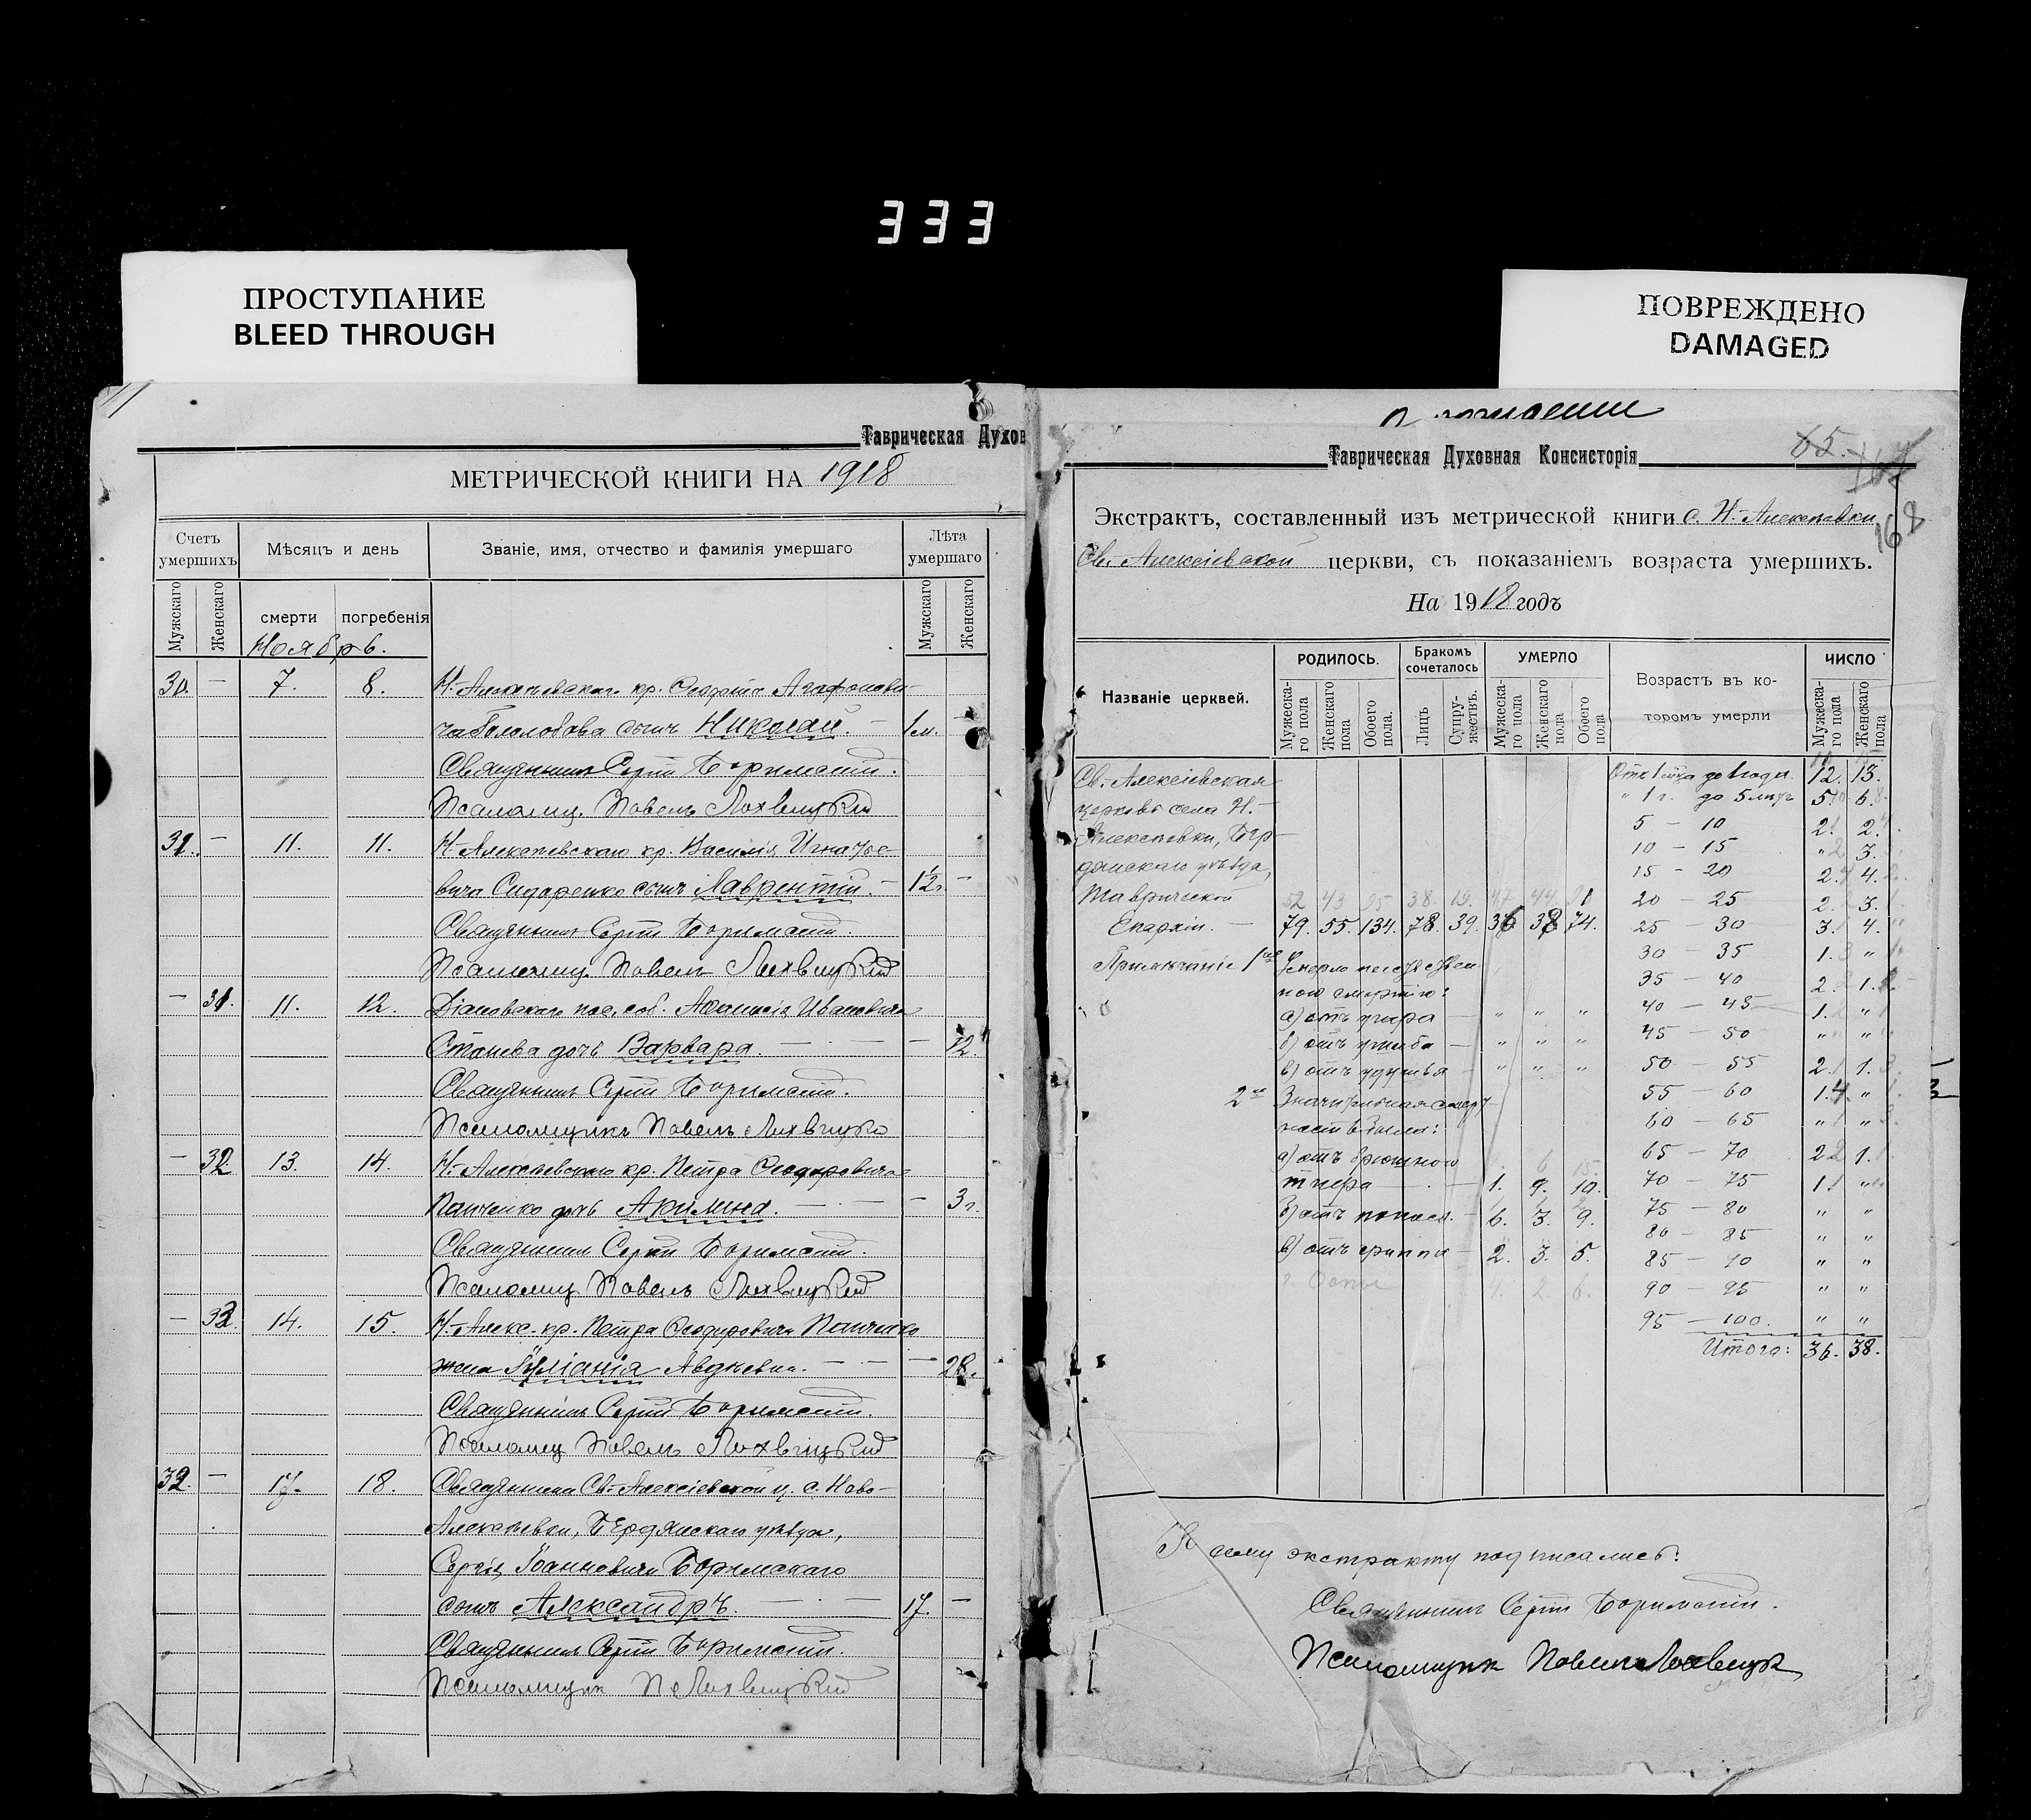 333
ПРОСТУПАНИЕ
BLEED THROUGH
ПОВРЕЖДЕНО
DAMAGED
Таврическая Духов
МЕТРИЧЕСКОЙ КНИГИ НА 1918
Счетъ умершихъ
Мѣсяцъ и день
Званіе, имя, отчество и фамилія умершаго
Лѣта умершаго
Мужскаго
Женскаго
смерти
погребенія
Мужскаго
Женскаго
Ноябрь.
30. — 7. 8. Н.-Алексѣевскаго кр. Агафонови-
сынъ Николай. — 1 м. —
Священникъ Сергій Боримскій.
Псаломщ. Павелъ Лохвицкій
31. — 11. 11. Н-Алексѣевскаго кр. Василія Игнатье-
вича Сидоренко сынъ Лаврентій. — 12. —
Священникъ Сергій Боримскій.
Псаломщ. Павелъ Лохвицкій
— 31. 11. 12. Діановскаго пос. соб. Аѳанасія Ивановича
Станева дочь Варвара. — — 72.
Священникъ Сергій Боримскій.
Псаломщикъ Павелъ Лохвицкій
— 32. 13. 14. Н.-Алексѣевскаго кр. Петра Ѳеодоровича
Панченко дочь Акилина. — — 3 г.
Священникъ Сергій Боримскій.
Псаломщ Павелъ Лохвицкій
— 33. 14. 15. Н-Алекс. кр. Петра Ѳеодоровича Панченко
жена Іуліанія Авдѣевна. — — 28.
Священникъ Сергій Боримскій.
Псаломщ Павелъ Лохвицкій
32. — 17. 18. Священника Св.-Алексіевской ц. с. Ново-
Алексѣевки, Бердянскаго уѣзда,
Сергія Іоанновича Боримскаго
сынъ Александръ. — 17. —
Священникъ Сергій Боримскій.
Псаломщикъ П Лохвицкій
Таврическая Духовная Консисторія
65.
168
Экстрактъ, составленный изъ метрической книги с. Н-Алексѣевки
Св.-Алексіевской церкви, съ показаніемъ возраста умершихъ.
На 1918 годъ
Названіе церквей.
РОДИЛОСЬ.
Бракомъ сочеталось
УМЕРЛО
Возрастъ въ ко-
торомъ умерли
ЧИСЛО
Мужеска-го пола
Женскаго пола
Обоего пола.
Лицъ
Супру-жествъ.
Мужеска-го пола
Женскаго пола
Обоего пола
Мужеска-го пола
Женскаго пола
Св.-Алексіевская
церковь села Н.-
Алексѣевки, Бер-
дянскаго уѣзда,
Таврической
Епархіи. — 79. 55. 134. 78. 39. 36 38 74.
до 1 года 12. 13.
" 1 г. до 5 лѣтъ 5 6.
5 — 10 2. 2.
10 — 15 " 3.
15 — 20 2. 4.
20 — 25 2. 3.
25 — 30 3. 4.
30 — 35 1. "
35 — 40 2. 1.
40 — 45 1. "
45 — 50 " "
50 — 55 2. 1.
55 — 60 1. "
60 — 65 " "
65 — 70 2 1.
70 — 75 1. "
75 — 80 " "
80 — 85 " "
85 — 90 " "
90 — 95 " "
95 — 100. " "
Итого: 36. 38.
Примѣчаніе 1-ое Умерло неестествен-
ною смертію:
а) отъ угара — " " "
б) отъ ушиба — " " "
в) отъ удушья " " "
2-ое Значительная смерт-
ность была:
а) отъ брюшного
тифа — 1. 9. 10.
б) отъ поноса. — 6. 3. 9.
в) отъ гриппа — 2. 3. 5.
г. Оспы 4. 2. 6.
К сему экстракту подписались:
Священникъ Сергій Боримскій.
Псаломщикъ Павелъ Лохвицкій